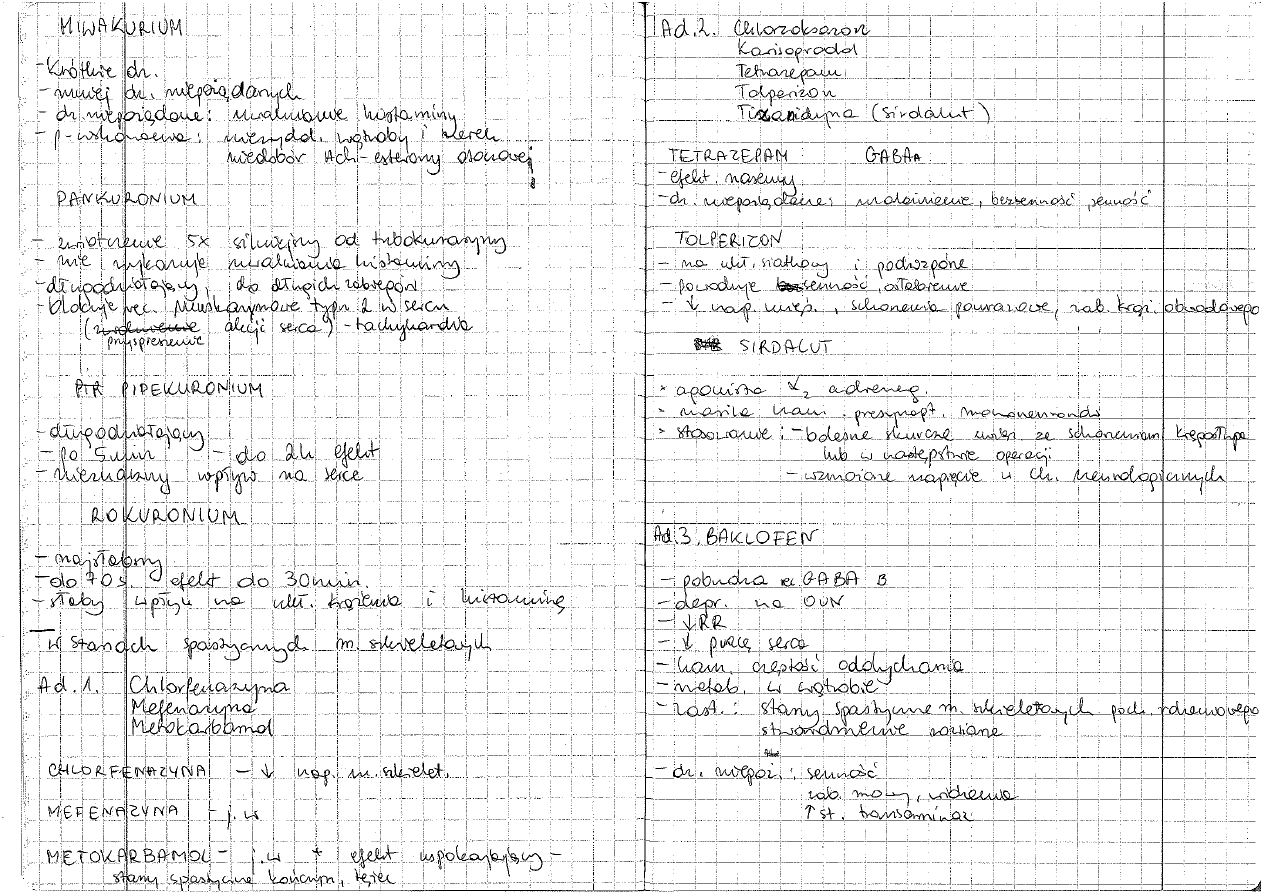 MIWAKURIUM
- Krótkie dz.
- mniej dz. niepożądanych
- dz. niepożądane: uwalnianie histaminy
- p-wskazania: niewydol. wątroby i nerek
niedobór Ach-esterazy osoczowej
PANKURONIUM
- zwiotczenie 5x silniejszy od tubokuraryny
- nie wykazuje uwalniania histaminy
- długodziałający, do długich zabiegów
- blokuje rec. muskarynowe typu 2 w sercu
(zwolnienie akcji serca) - tachykardia
przyspieszenie
PIPEKURONIUM
- długodziałający
- po 5 min - do 2h efekt
- nieznaczny wpływ na serce
ROKURONIUM
- najsłabszy
- do 70 s. efekt do 30 min.
- słaby wpływ na ukł. krążenia i histaminę
W stanach spastycznych m. szkieletowych
Ad. 1. Chlorfenazyna
Mefenazyna
Metokarbamol
CHLORFENAZYNA - ↓ nap. m. szkielet.
MEFENAZYNA - j.w
METOKARBAMOL - j.w + efekt uspokajający -
stany spastyczne kończyn, tężec
Ad. 2. Chlorzoksazon
Karisoprodol
Tetrazepam
Tolperizon
Tizanidyna (Sirdalut)
TETRAZEPAM GABAA
- efekt nasenny
- dz. niepożądane: uzależnienie, bezsenność, senność
TOLPERIZON
- na ukł. siatkowy i podwzgórze
- powoduje senność, osłabienie
- ↓ nap. mięś., schorzenia pourazowe, zab. krąż. obwodowego
SIRDALUT
* agonista α2 adrenerg.
* nasila ham. presynapt. motoneuronów
* stosowanie: - bolesne skurcze związ. ze schorzeniami kręgosłupa
lub w następstwie operacji
- wzmożone napięcie w ch. neurologicznych
Ad. 3. BAKLOFEN
- pobudza rec GABA B
- depr. na OUN
- ↓RR
- ↓ pracę serca
- ham. częstość oddychania
- metab. w wątrobie
- zast.: stany spastyczne m. szkieletowych poch. rdzeniowego
stwardnienie rozsiane
- dz. niepoż.: senność
zab. mowy, widzenia
↑ st. transaminaz